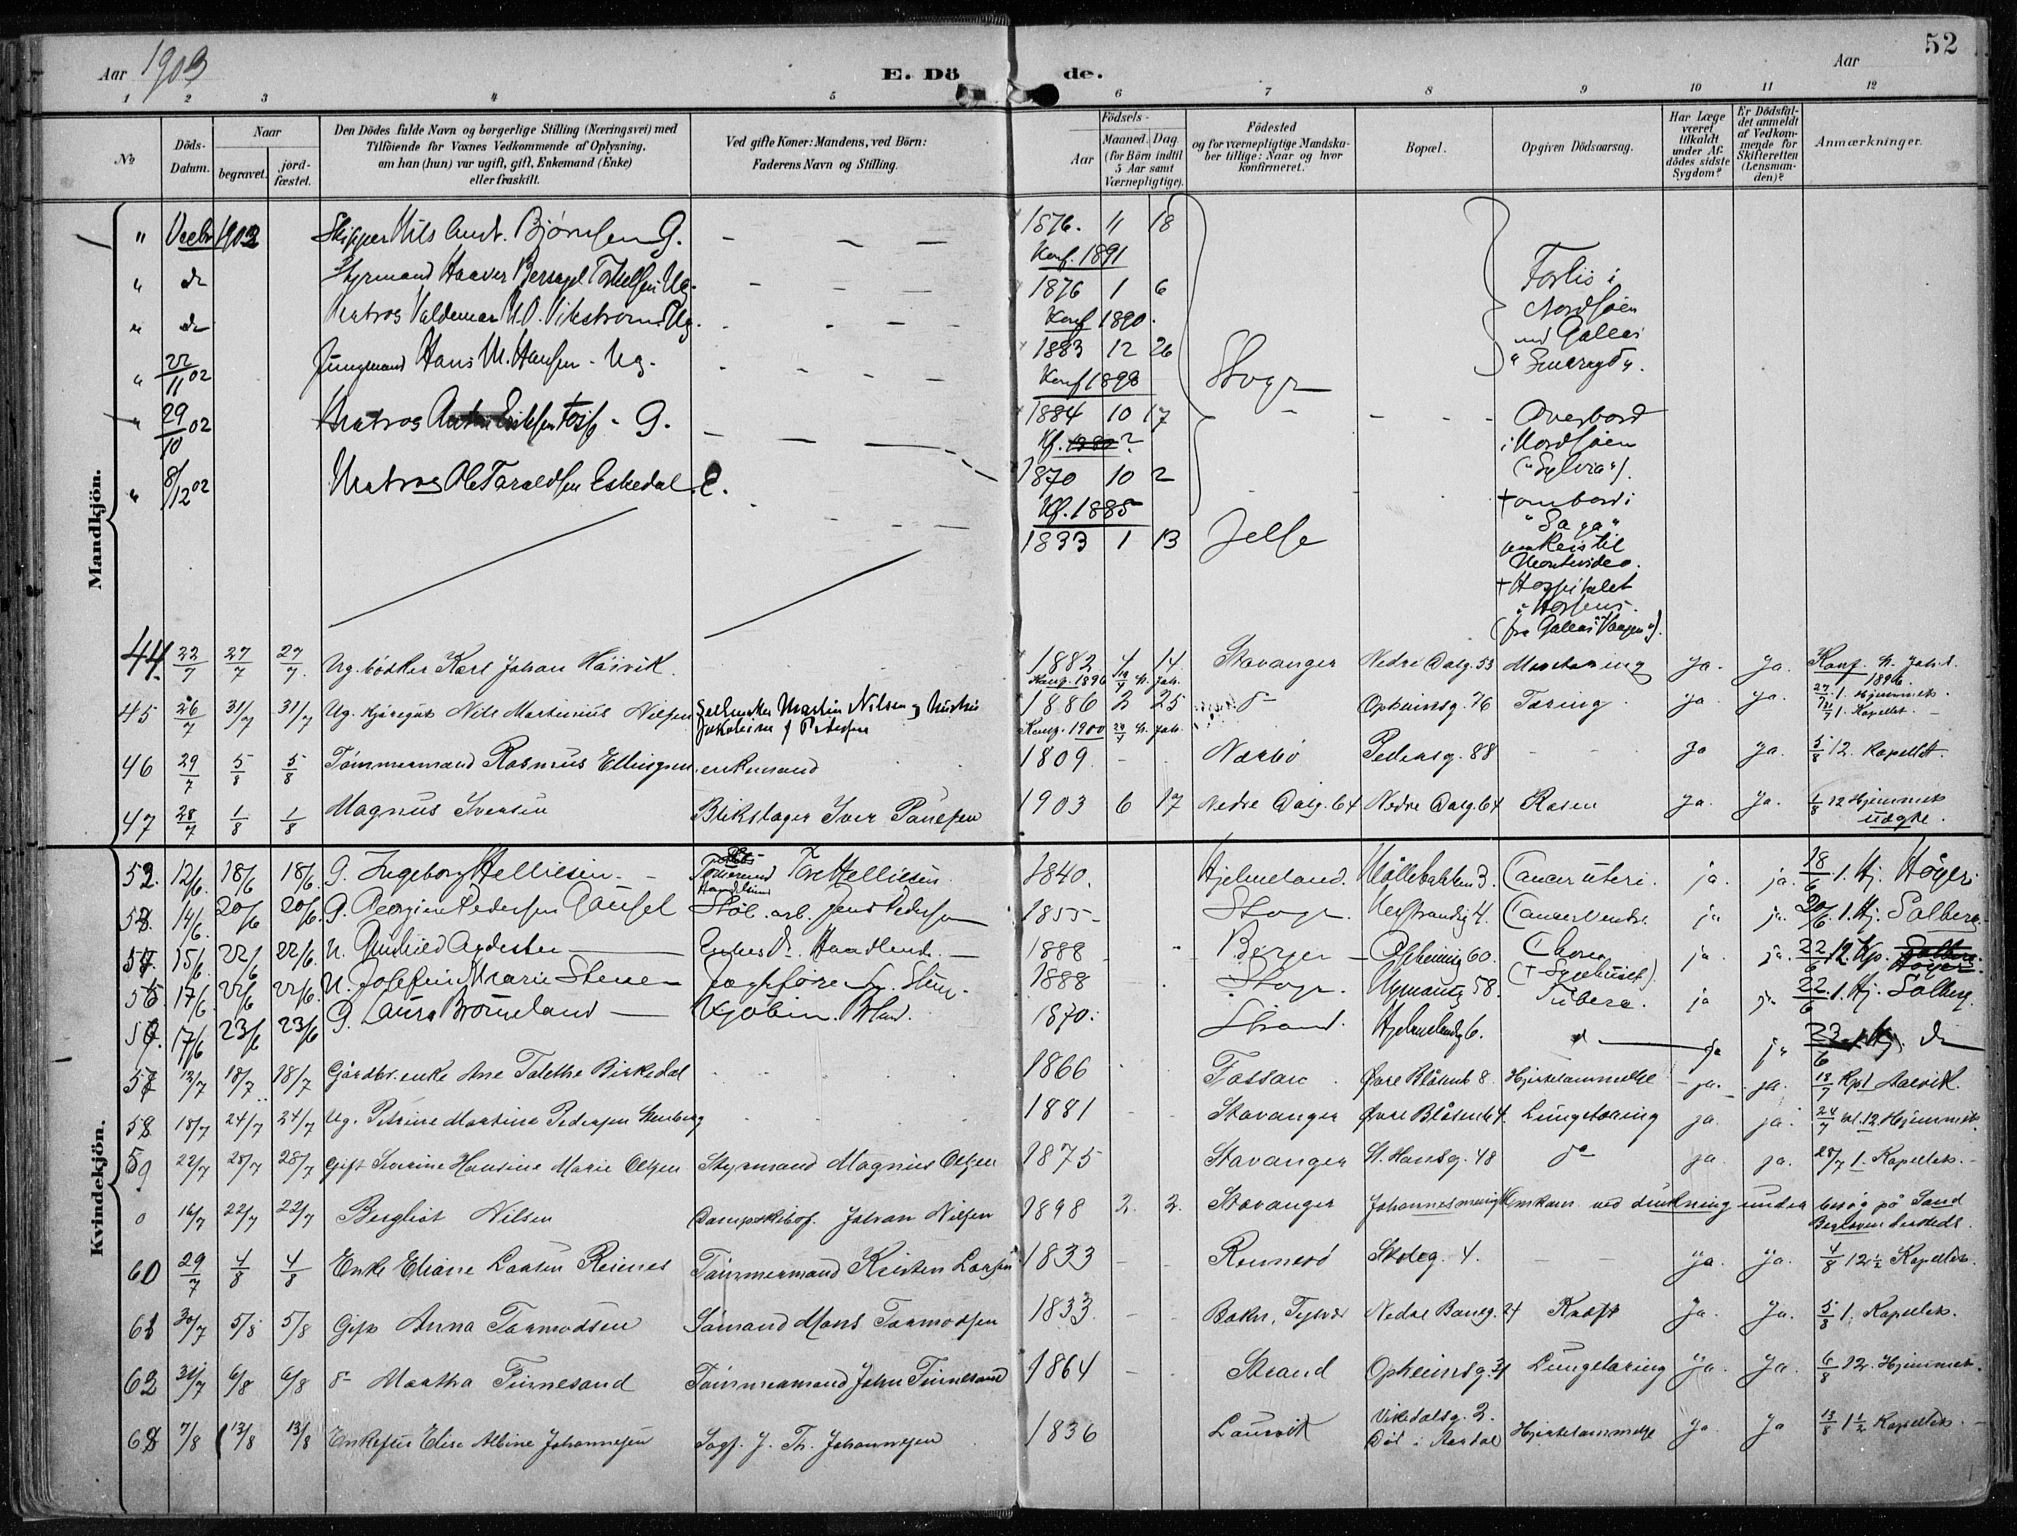 Aar 1903 E. Döde. Aar 52
1 2 3 4 5 6 7 8 9 10 11 12
No
Döds-Datum.
Naar
begravet.
jordfæstet.
Den Dödes fulde Navn og borgerlige Stilling (Næringsvei) med
Tilföiende for Voxnes Vedkommende af Oplysning,
om han (hun) var ugift, gift, Enkemand (Enke)
eller fraskilt.
Ved gifte Koner: Mandens, ved Börn:
Faderens Navn og Stilling.
Födsels-
Aar
Maaned. Dag
(for Börn indtil
5 Aar samt
Værnepligtige).
Födested
og for værnepligtige Mandska-
ber tillige: Naar og hvor
konfirmeret.
Bopæl.
Opgiven Dödsaarsag.
Har Læge
været
tilkaldt
under Af-
dödes sidste
Sygdom?
Er Dödsfal-
det anmeldt
af Vedkom-
mende for
Skifteretten
(Lensman-
den)?
Anmærkninger.
Mandkjön.
" Decbr 1902 Skipper Nils Andr. Björnsen G. - - - 1876. 11 18
Konf. 1891
" do Styrmand Haaver Bersagel Torkelsen Ug. 1876 1 6
Konf 1890.
" do Matros Valdemar Vikstrøm Ug. 1883 12 26
Konf 1898
" 22/11 02 Jungmand Hans M. Hansen - Ug. Stvgr 1884 10 17
Forlis i
Nordsjøen
med Galeas
"Smaragd".
" 29/10 02 Matros Eriksen - G. 1870 10 2
Kf. 1885
Overbord
i Nordsjøen
("Sylvia").
" 8/12 02 Matros Ole Taraldsen Eskedal E. 1833 1 13 Jelse
+ ombord i
"Saga"
paa Reis til
Montevideo.
+ Hospitalet
i Horsens.
(fra Galeas "Vaagen").
44 22/7 27/7 27/7. Ug. bödker Karl Johan Höivik. 1882 4 14 Stavanger Nedre Dalg. 53 ja. ja. Konf. St. Joh. k. 1896
Konf. 1896 27/7 1. Hjemmet.
45 26/7 31/7 31/7 Ug. Nils Martinius Nilsen Martin Nilsen og Hustru 1886 2 25 do Opheimsg. 76 Tæring. ja ja. 31/7 1. Kapellet.
Konf. 1900 St. Joh.
46 29/7 5/8 5/8 Tömmermand Rasmus Ellingsen enkemand 1809 - - Nærbö Pedersg. 88 - - ja ja. 5/8 12. Kapellet.
47 28/7 1/8 1/8 Magnus Iversen Blikslager Iver Paulsen 1903 6 17 Nedre Dalg. 64 Nedre Dalg. 64 Rosen ja. ja. 1/8 12 Hjemmet
udøpt.
Kvindekjön.
52. 12/6. 18/6 18/6. G. Ingeborg Helliesen. - Tore Helliesen. 1840. Hjelmeland. Møllebakken 3. Cancer uteri. ja ja. 18/6 1. Hj. Höyer
53. 14/6. 20/6 20/6. G. Georgine Pedersen Gausel Støb. arb. Jens Pedersen 1855 - Stvgr. Verftsandg 4. Cancer ventr. ja ja. 20/6. 1. Hj. Solberg.
54. 15/6. 22/6 22/6. U. Gunhild Aadland. 1888 Bergen Opheimsg 60. Chorea ja ja. 22/6 12. Kp.
(+ Sygehuset).
55 17/6. 22/6 22/6. U. Josefine Marie Stene 1888 Stvgr. Nymansg 58. Tuberc. ja ja 22/6. 1. Hj. Solberg.
56. 17/6 23/6 23/6 G. Laura Brommeland Kjøbm. 1870. Strand. Hjelmelandg 6. do ja ja 23/6 1 Hj. do
57 12/7 18/7 18/7 Gårdbr. enke Ane Talette Birkedal 1866 Fossan. Øvre Blåsenb 8. Hjertelammelse - ja. ja. 18/7 Kpl Aarvik.
58 18/7 24/7 24/7 Ug. Petrine Martine Pedersen Stenberg 1881 - - Stavanger Øvre Blåsenb 4. Lungetæring ja. ja. 24/7 kl. 12 Hjemmet.
59 22/7 28/7 28/7 Gift Severine Hansine Marie Olsen Styrmand Magnus Olsen 1875 Stavanger St. Hansg. 48 do ja ja. 28/7 1. Kapellet.
0 16/7 22/7 22/7 Bergliot Nilsen Dampskibsf. Johan Nilsen 1898 2. 2. Stavanger Johannesmenigh Omkom ved drukning under besøg på Sand
60 29/7 4/8 4/8 Enke Eliane Larsen Reines Tömmermand Kristen Larsen 1833 - - Rennesö Skoleg. 4. - - ja. ja. 4/8 12 1/2 Kapellet.
61 30/7 5/8 5/8 Gift Anna Tormodsen Sömand Mons Tormodsen 1833. - - Bokn, Tysvær Nedre Banog. 24 Kræft ja. ja. 5/8 1. Kapellet.
62 31/7 6/8 6/8 do Martha Finnesand Tömmermand John Finnesand 1864 - Strand Opheimsg. 31 Lungetæring ja. ja. 6/8 12. Hjemmet.
63 7/8 13/8 13/8 Enkefru Elise Albine Johannesen Sagf. J. Th. Johannesen 1836 Laurvik Vikedalsg. 2. Hjertelammelse ja. ja 13/8 1 1/2 Kapellet.
Död i Aardal